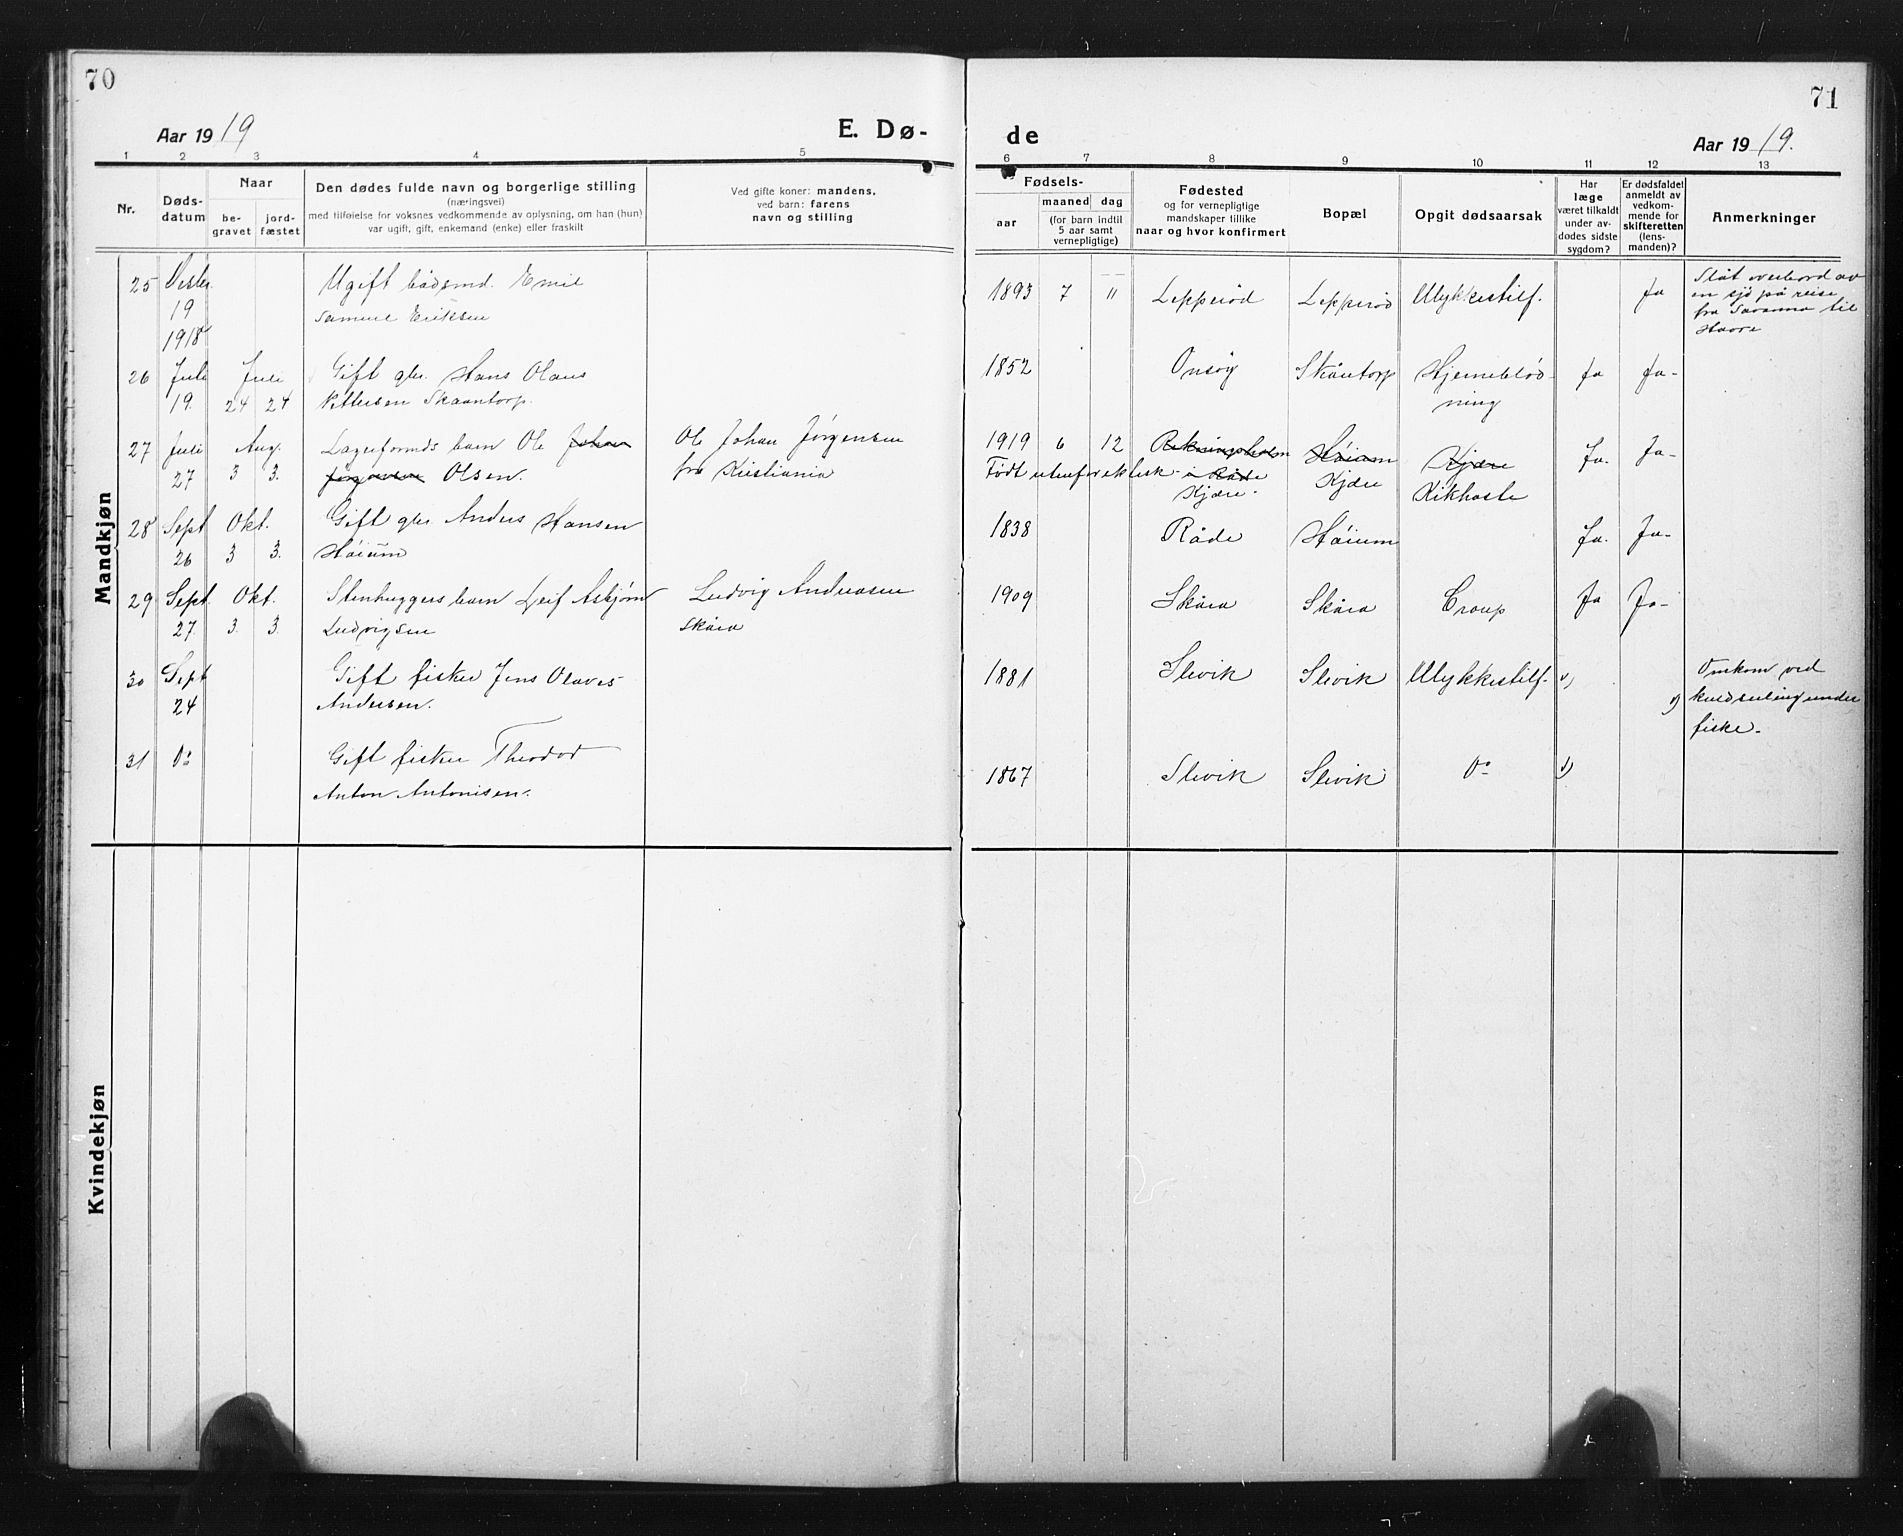 70
71
Aar 1919
E. Dø-
de
Aar 1919.
1 2 3 4 5
6 7 8 9 10 11 12 13
Nr.
Døds-
datum
Naar
be-
gravet
jord-
fæstet
Den dødes fulde navn og borgerlige stilling
(næringsvei)
med tilføielse for voksnes vedkommende av oplysning, om han (hun)
var ugift, gift, enkemand (enke) eller fraskilt
Ved gifte koner: mandens,
ved barn: farens
navn og stilling
Fødsels-
aar
maaned dag
(for barn indtil
5 aar samt
vernepligtige)
Fødested
og for vernepligtige
mandskaper tillike
naar og hvor konfirmert
Bopæl
Opgit dødsaarsak
Har
læge
været tilkaldt
under av-
dødes sidste
sygdom?
Er dødsfaldet
anmeldt av
vedkom-
mende for
skifteretten
(lens-
manden)?
Anmerkninger
Mandkjøn
25 Ugift bådsmd. Emil 1893 7 11 Lepperød Lepperød Ulykkestilf. Ja Slåt overbord av
19 Samuel Eriksen en sjö på reise
1918 fra Savanna til
Havre
26 Juli Juli Gift gbr. Hans Olaus 1852 Onsøy Skåntorp Hjerneblød- Ja Ja-
19. 24 24 Pettersen Skaantorp. ning
27 Juli Aug. Lagerformds barn Ole Johan Ole Johan Jørgensen 1919 6 12 Høium Kjære Ja. Ja-
27 3 3. Jørgensen Olsen. fra Kristiania Født utenfor ektesk. i Råde Kjære Kikhoste
Kjære.
28 Sept Okt. Gift gbr. Anders Hansen 1838 Råde Høium Ja. Ja-
26 3 3. Høium
29 Sept. Okt. Stenhuggers barn Leif Asbjørn Ludvig Andreasen 1909 Skåra Skåra Croup Ja Ja-
27. 3. 3. Ludvigsen Skåra
30 Sept Gift fisker Jens Olaves 1881 Slevik Slevik Ulykkestilf. Omkom ved
24 Andersen. kuldseiling under
fiske.
31 Do Gift fisker Theodor 1867 Slevik Slevik Do
Anton Antonisen.
Kvindekjøn